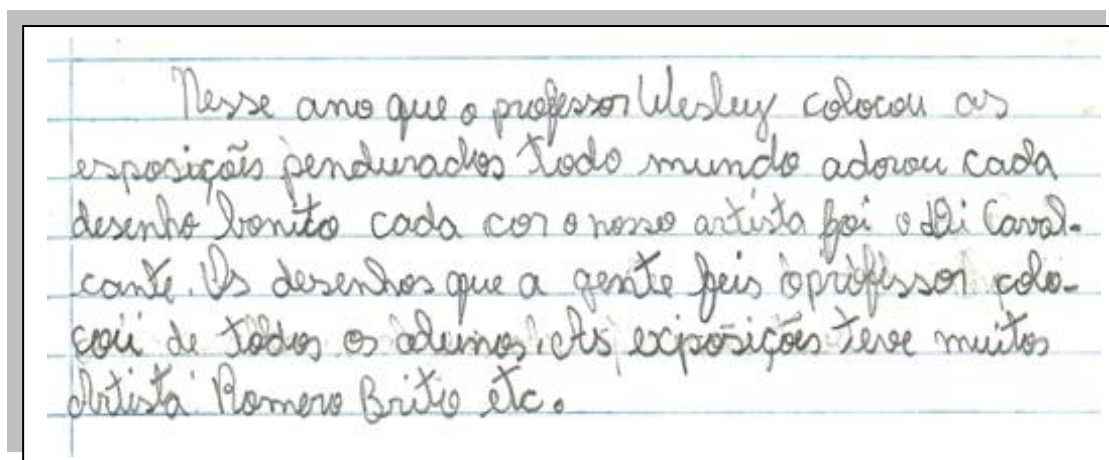 Nesse ano que o professor Wesley colocou as
esposições pendurados todo mundo adorou cada
desenho bonito cada cor o nosso artista foi o Di Caval-
cante. Os desenhos que a gente feis o professor colo-
cou de todos os alunos. As exposições teve muitos
Artista Romero Brito etc.